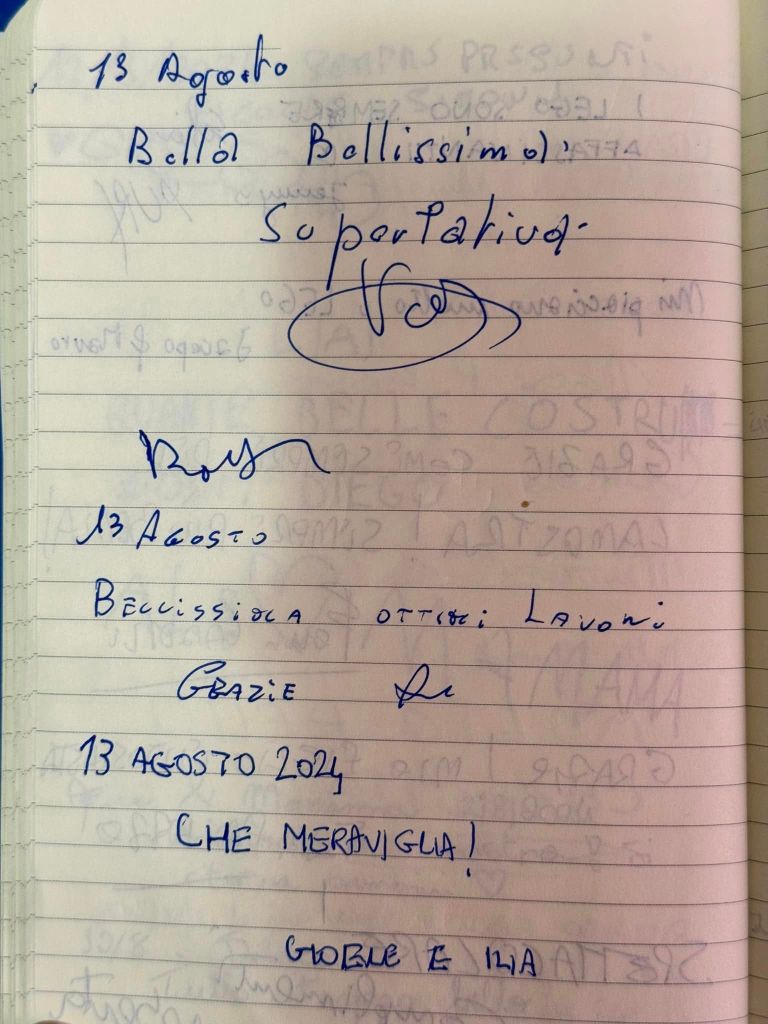 13 Agosto
Bella Bellissima
Superlativa
13 Agosto
BELLISSIMA OTTIMI LAVORI
GRAZIE
13 AGOSTO 2024
CHE MERAVIGLIA!
GIOELE E ILIA